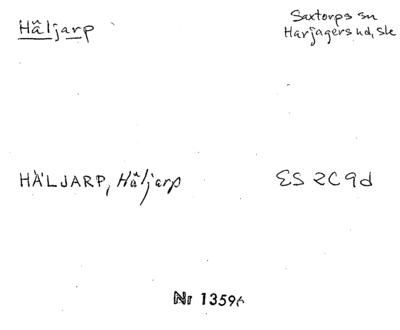 Häljarp
Saxtorps sn
Harjagers hd, Sk
HÄLJARP, Häljarp
ES 2C9d
Nr 1359